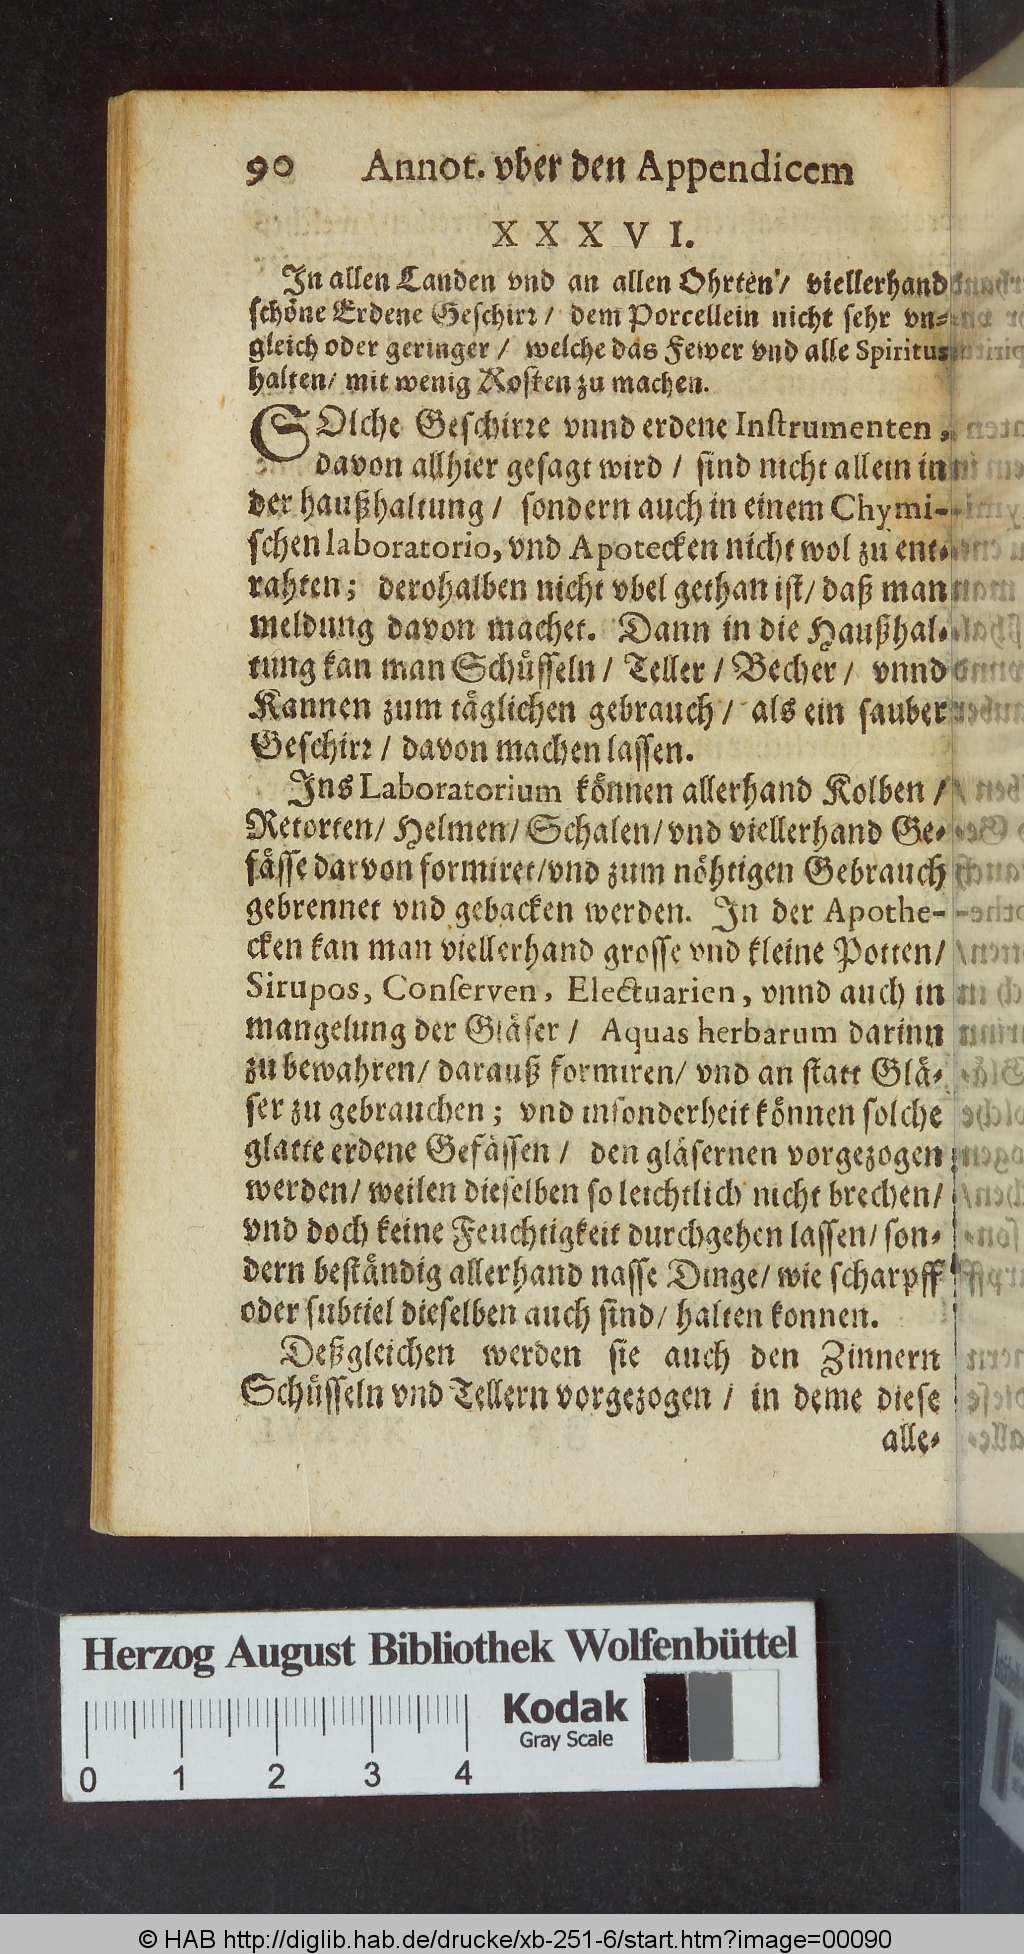 90 Annot. vber den Appendicem
XXXVI.
In allen Landen vnd an allen Ohrten / viellerhand
schöne Erdene Geschirr / dem Porcellein nicht sehr vn-
gleich oder geringer / welche das Fewer vnd alle Spiritus
halten / mit wenig Kosten zu machen.
SOlche Geschirre vnnd erdene Instrumenten,
davon allhier gesagt wird / sind nicht allein in
der haußhaltung / sondern auch in einem Chymi-
schen laboratorio, vnd Apotecken nicht wol zu ent-
rahten; derohalben nicht vbel gethan ist / daß man
meldung davon machet. Dann in die Haußhal-
tung kan man Schüsseln / Teller / Becher / vnnd
Kannen zum täglichen gebrauch / als ein sauber
Geschirr / davon machen lassen.
Ins Laboratorium können allerhand Kolben /
Retorten / Helmen / Schalen / vnd viellerhand Ge-
fässe darvon formiret / vnd zum nöhtigen Gebrauch
gebrennet vnd gebacken werden. In der Apothe-
cken kan man viellerhand grosse vnd kleine Potten /
Sirupos, Conserven, Electuarien, vnnd auch in
mangelung der Gläser / Aquas herbarum darinn
zu bewahren / darauß formiren / vnd an statt Glä-
ser zu gebrauchen; vnd insonderheit können solche
glatte erdene Gefässen / den gläsernen vorgezogen
werden / weilen dieselben so leichtlich nicht brechen /
vnd doch keine Feuchtigkeit durchgehen lassen / son-
dern beständig allerhand nasse Dinge / wie scharpff
oder subtiel dieselben auch sind / halten konnen.
Deßgleichen werden sie auch den Zinnern
Schüsseln vnd Tellern vorgezogen / in deme diese
alle-
Herzog August Bibliothek Wolfenbüttel
Kodak
Gray Scale
0 1 2 3 4
© HAB http://diglib.hab.de/drucke/xb-251-6/start.htm?image=00090